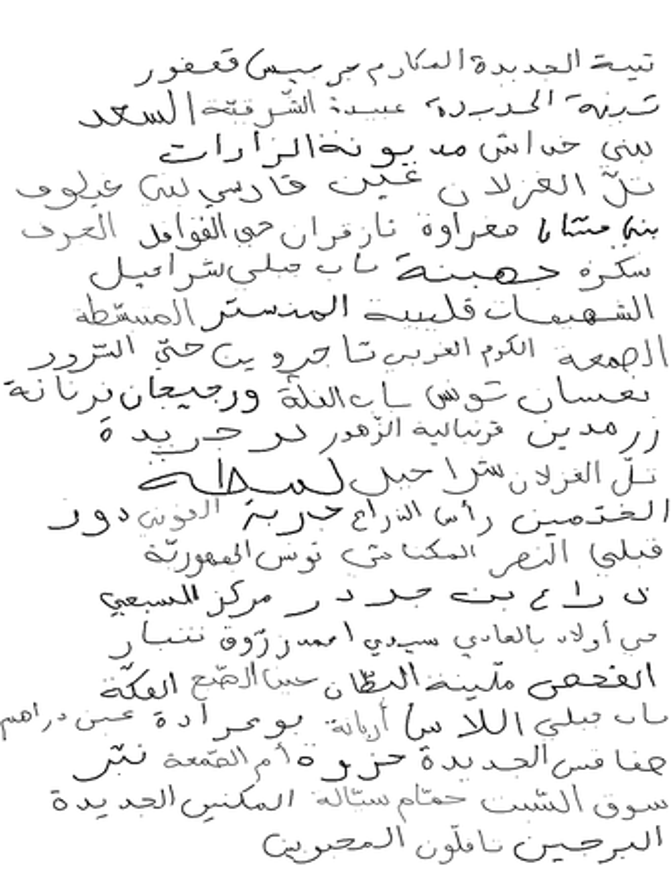 تينة الجديدة المكارم قعفور
تينة الجديدة عبيدة الشرقية السعد
بني خداش مديونة الزارات
تلّ الغزلان غنين فارسي
بني معراوة تازقران حي القوافل
سكرة جهينة باب جبلي شراحيل
الشهيمات قليبية المنستير
الصمعة الكرم الغربي تاجروين حيّ السّرور
نعسان تونس باب العلة ورجيجان نرنانة
زرمدين قرنبالية الزّهور بوجريدة
تلّ الغزلان شراحيل لمطة
الخدمين رأس الذراع جربة دور
قبلي النصر المكنا متى تونس الجمهوريّة
ذراع بن جدر مركز السبعي
حي أولاد بالهادي سيدي امحمد زرّوق ننبار
الفحص مليتة البطان عين الضبع العكّة
باب جبلي اللاس أريانة بومرادة عين دراهم
صفاقس الجديدة حزوة أم الصّمعة نبّر
سوق السّبت حمّام ستّالة المكنين الجديدة
البرجين نافلّون المحبوبين